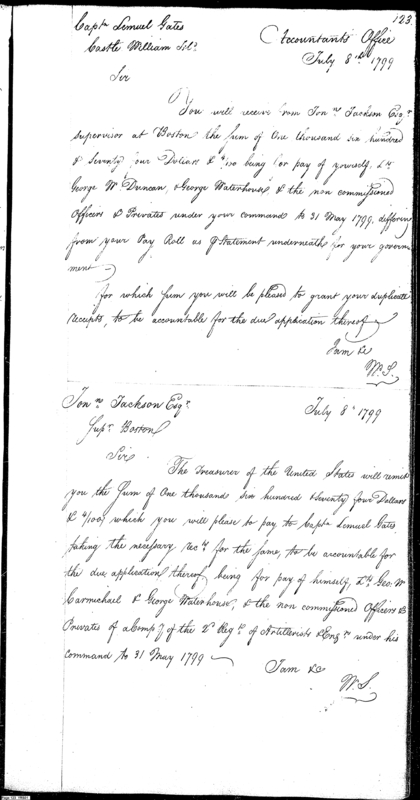 123
Captn Lemuel Gates
Castle William
Accountants Office
July 8th 1799
Sir
You will receive from Jonn Jackson Esqr
supervisor at Boston the sum of One thousand six hundred
& seventy four Dollars & 4/100 being for pay of yourself, Lts
George W Duncan, George Waterhouse, & the non commissioned
Officers & Privates under your command to 31 May 1799, differing
from your Pay Roll as Statement underneath for your govern
ment
for which sum you will be pleased to grant your duplicate
receipts, to be accountable for the due application thereof
I am &c
W. S.
Jonn Jackson Esqr
Supr Boston
July 8th 1799
Sir
The Treasurer of the United States will remit
you the Sum of One thousand Six hundred Seventy four Dollars
& 4/100, which you will please to pay to Captn Lemuel Gates
taking the necessary recets for the same, to be accountable for
the due application thereof being for pay of himself, Lts Geo. W
Carmichael & George Waterhouse, & the non commissioned Officers &
Privates of a Compy of the 2d Regt of Artillerists & Engrs under his
command to 31 May 1799
I am &c
W. S.